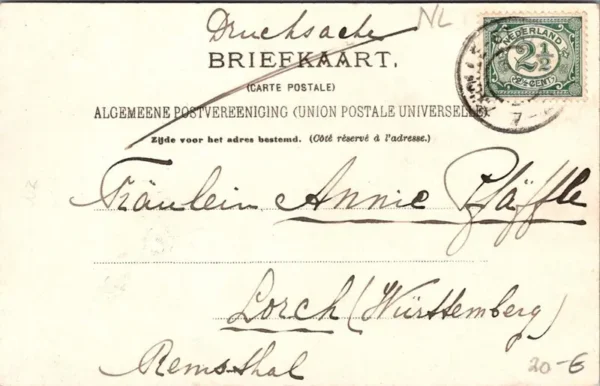 Drucksache
NL
BRIEFKAART.
(CARTE POSTALE)
ALGEMEENE POSTVEREENIGING (UNION POSTALE UNIVERSELLE)
Zijde voor het adres bestemd. (Côté réservé à l'adresse.)
NEDERLAND
2½
2½ CENT
Fräulein Annie Pfäffle
Lorch (Württemberg)
Remsthal
20-6